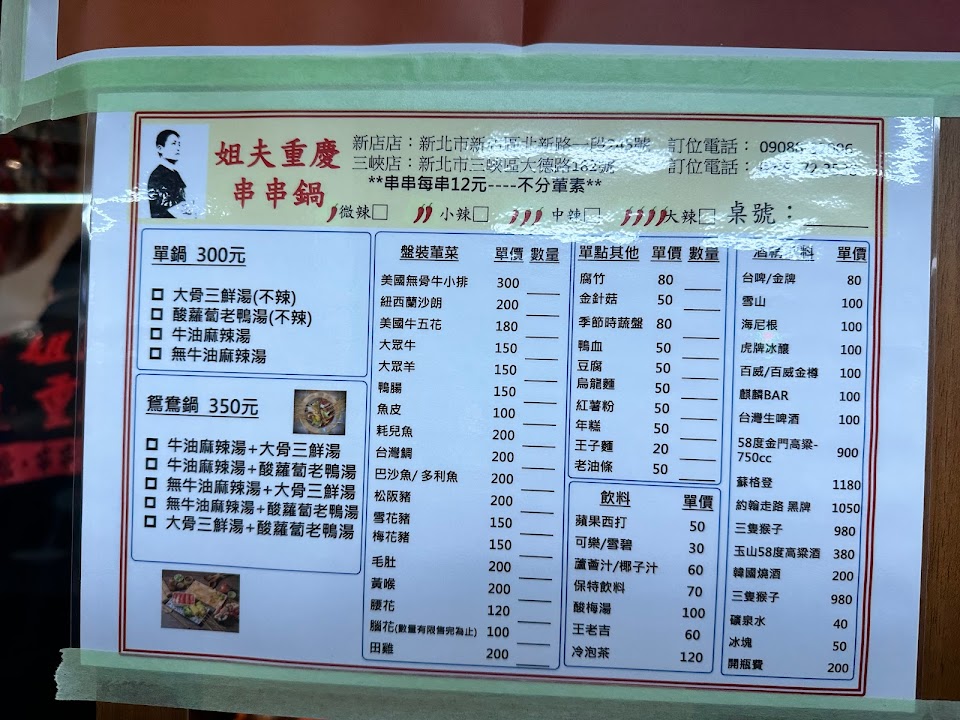 姐夫重慶
串串鍋
新店店：新北市新店區北新路一段245號 訂位電話：
三峽店：新北市三峽區大德路182號 訂位電話：
**串串每串12元----不分葷素**
微辣□ 小辣□ 中辣□ 大辣□ 桌號：
單鍋 300元
□ 大骨三鮮湯(不辣)
□ 酸蘿蔔老鴨湯(不辣)
□ 牛油麻辣湯
□ 無牛油麻辣湯
鴛鴦鍋 350元
□ 牛油麻辣湯+大骨三鮮湯
□ 牛油麻辣湯+酸蘿蔔老鴨湯
□ 無牛油麻辣湯+大骨三鮮湯
□ 無牛油麻辣湯+酸蘿蔔老鴨湯
□ 大骨三鮮湯+酸蘿蔔老鴨湯
盤裝葷菜 單價 數量
美國無骨牛小排 300
紐西蘭沙朗 200
美國牛五花 180
大眾牛 150
大眾羊 150
鴨腸 150
魚皮 100
耗兒魚 200
台灣鯛 200
巴沙魚/ 多利魚 200
松阪豬 200
雪花豬 150
梅花豬 150
毛肚 200
黃喉 200
腰花 120
腦花(數量有限售完為止) 100
田雞 200
單點其他 單價 數量
腐竹 80
金針菇 50
季節時蔬盤 80
鴨血 50
豆腐 50
烏龍麵 50
紅薯粉 50
年糕 50
王子麵 20
老油條 50
飲料 單價
蘋果西打 50
可樂/雪碧 30
蘆薈汁/椰子汁 60
保特飲料 70
酸梅湯 100
王老吉 60
冷泡茶 120
料 單價
台啤/金牌 80
雪山 100
海尼根 100
虎牌冰釀 100
百威/百威金樽 100
麒麟BAR 100
台灣生啤酒 100
58度金門高梁-
750cc 900
蘇格登 1180
約翰走路 黑牌 1050
三隻猴子 980
玉山58度高粱酒 380
韓國燒酒 200
三隻猴子 980
礦泉水 40
冰塊 50
開瓶費 200